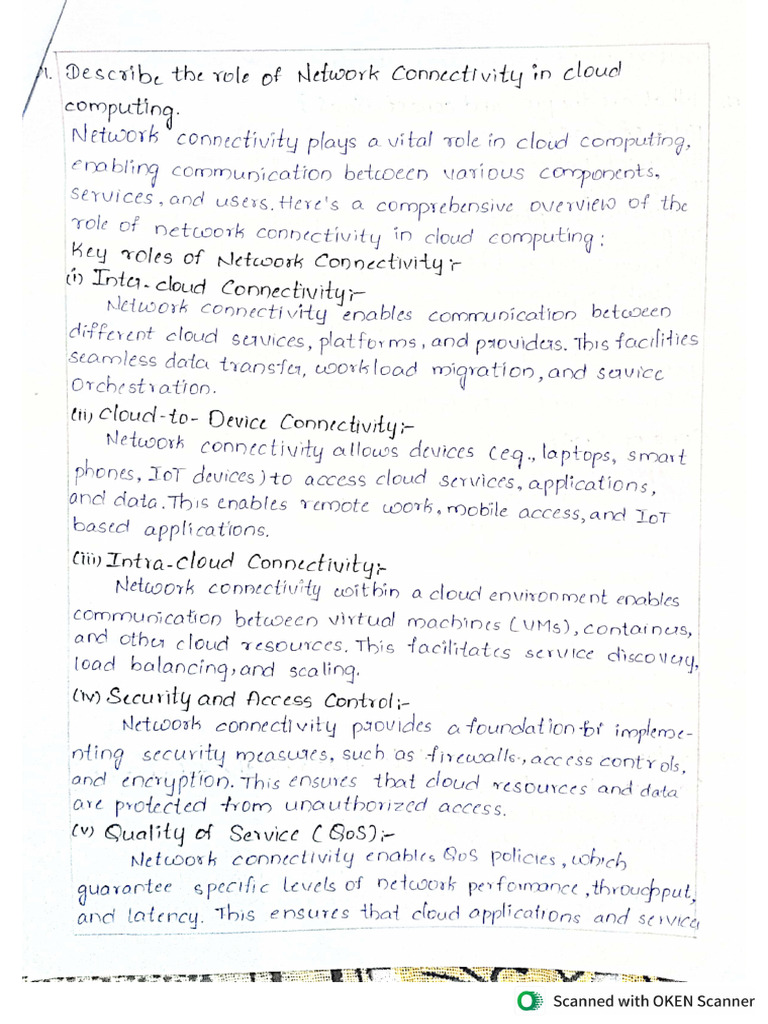 1. Describe the role of Network Connectivity in cloud
computing.
Network connectivity plays a vital role in cloud computing,
enabling communication between various components,
services, and users. Here's a comprehensive overview of the
role of network connectivity in cloud computing:
Key roles of Network Connectivity:-
(i) Inter-cloud Connectivity:-
Network connectivity enables communication between
different cloud services, platforms, and providers. This facilities
seamless data transfer, workload migration, and service
Orchestration.
(ii) Cloud-to-Device Connectivity:-
Network connectivity allows devices (eg., laptops, smart
phones, IoT devices) to access cloud services, applications,
and data. This enables remote work, mobile access, and IoT
based applications.
(iii) Intra-Cloud Connectivity:-
Network connectivity within a cloud environment enables
communication between virtual machines (VMs), containers,
and other cloud resources. This facilitates service discovery,
load balancing, and scaling.
(iv) Security and Access Control:-
Network connectivity provides a foundation for impleme-
nting security measures, such as firewalls, access controls,
and encryption. This ensures that cloud resources and data
are protected from unauthorized access.
(v) Quality of Service (QoS):-
Network connectivity enables QoS policies, which
guarantee specific levels of network performance, throughput,
and latency. This ensures that cloud applications and service
Scanned with OKEN Scanner